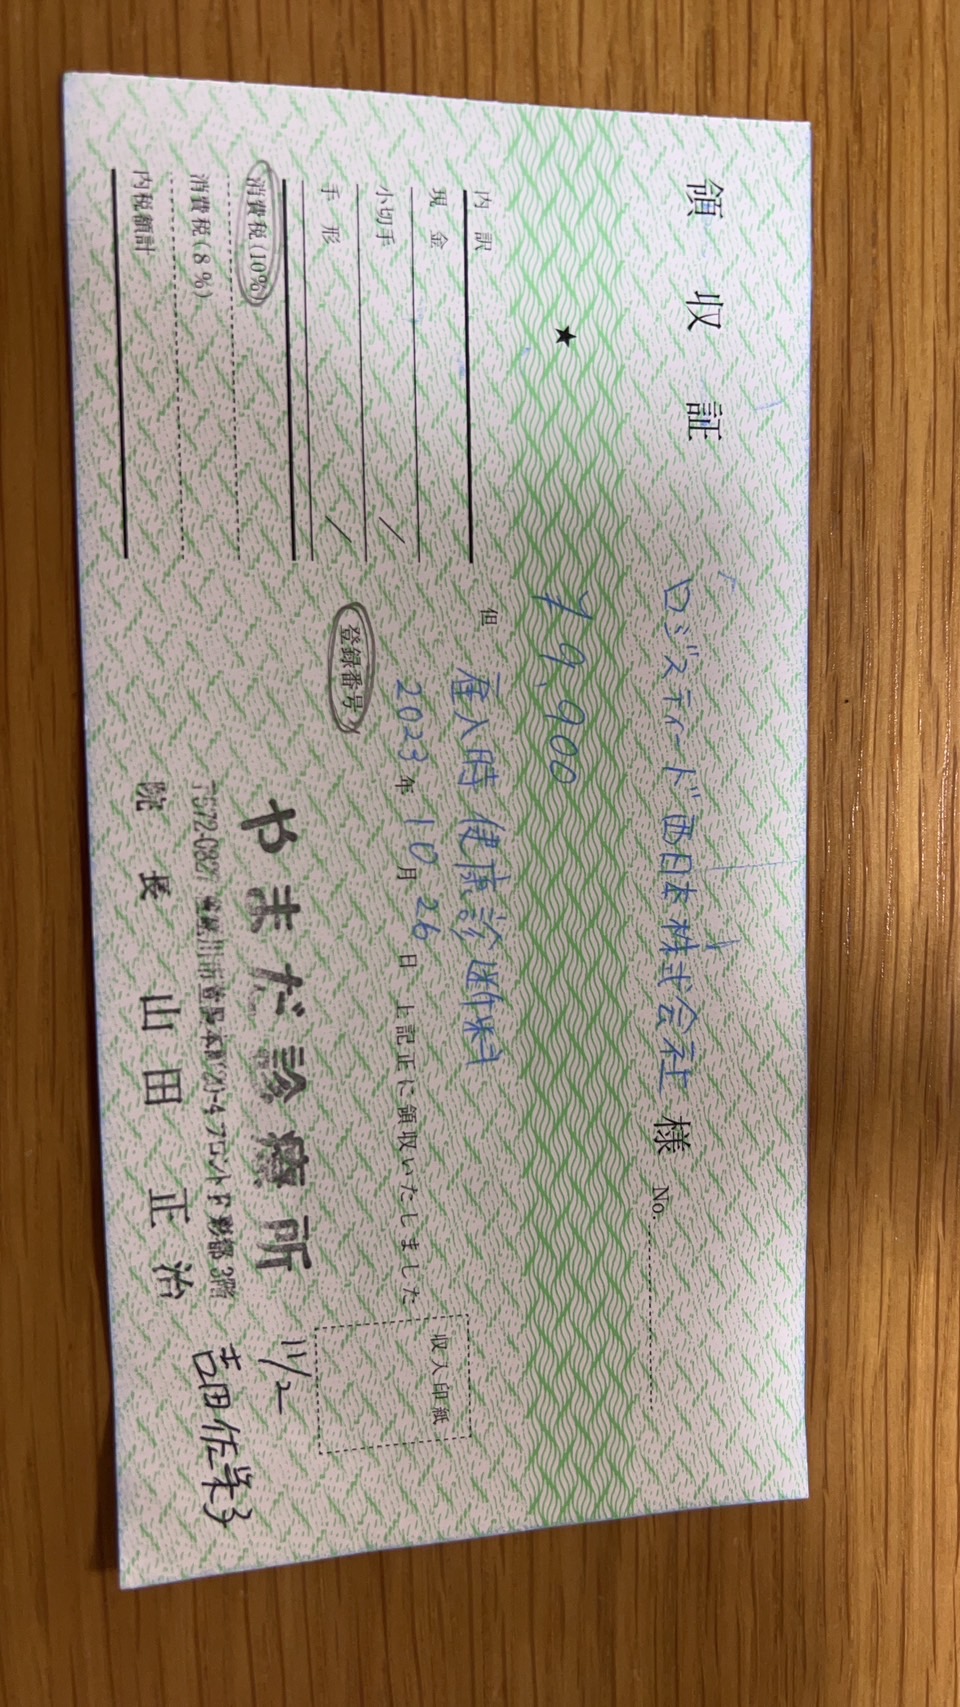 領収証
ロジスティード西日本株式会社 様
No.
★ ¥9,900
但 雇入時健康診断料
2023年10月26日 上記正に領収いたしました
内訳
現金
小切手
手形
消費税(10%)
消費税(8%)
内税額計
登録番号
収入印紙
やまだ診療所
3階
院長 山田正治
11/2
吉田